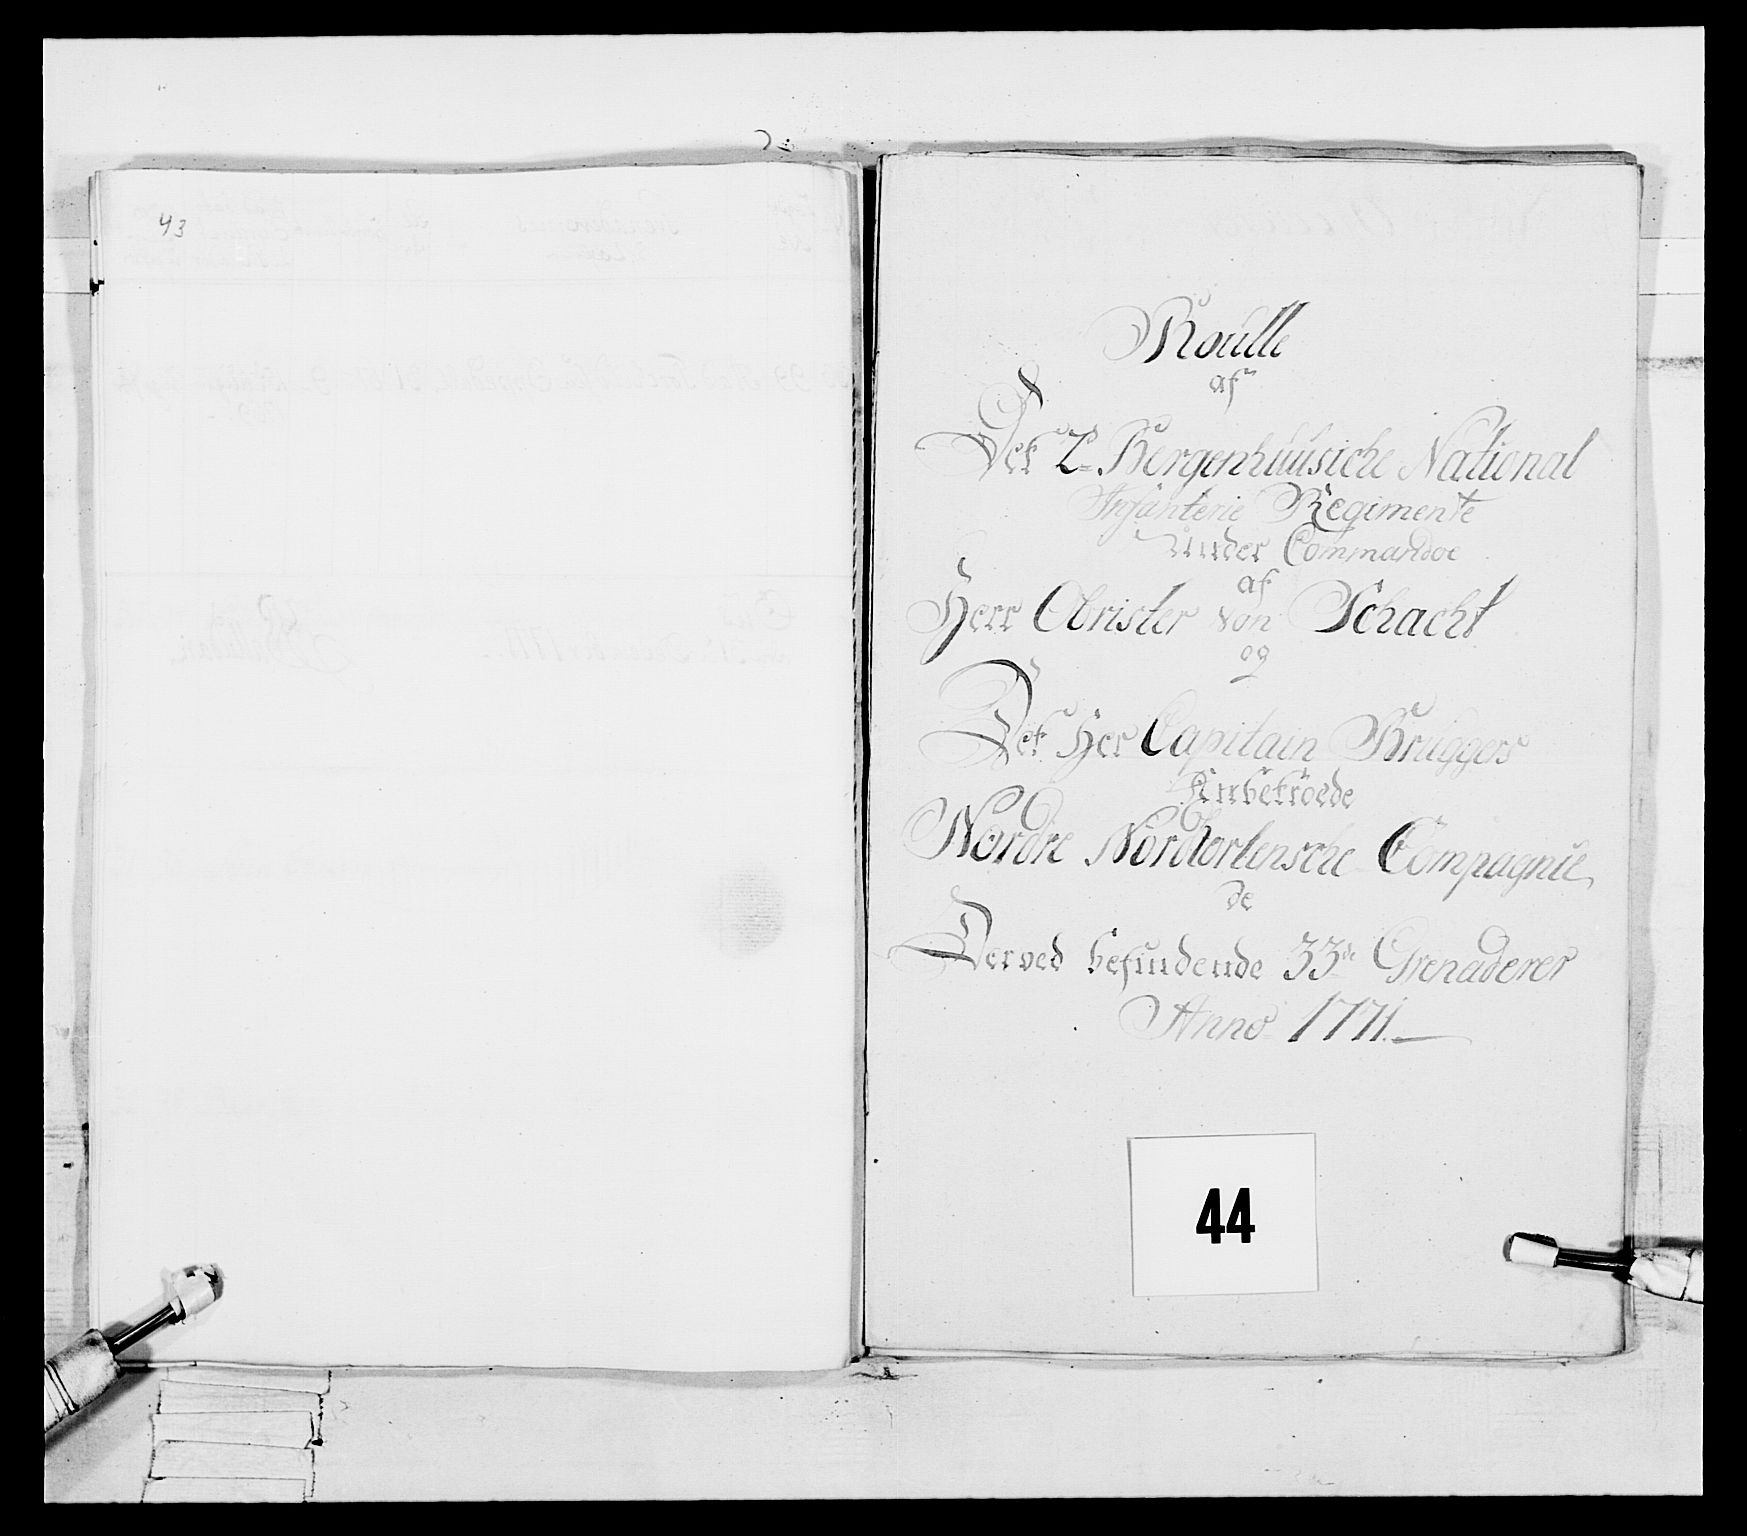 43
Roulle
af
Det 2de Bergenhuusiche National
Infanterie Regimente
under Commandoe
af
Herr Obrister von Schacht
og
Det Her Capitain Brüggers
Anbetroede
Nordre Nordhorlensche Compagnie
de
Derved befindende 33de Grenaderer
Anno 1771.
44